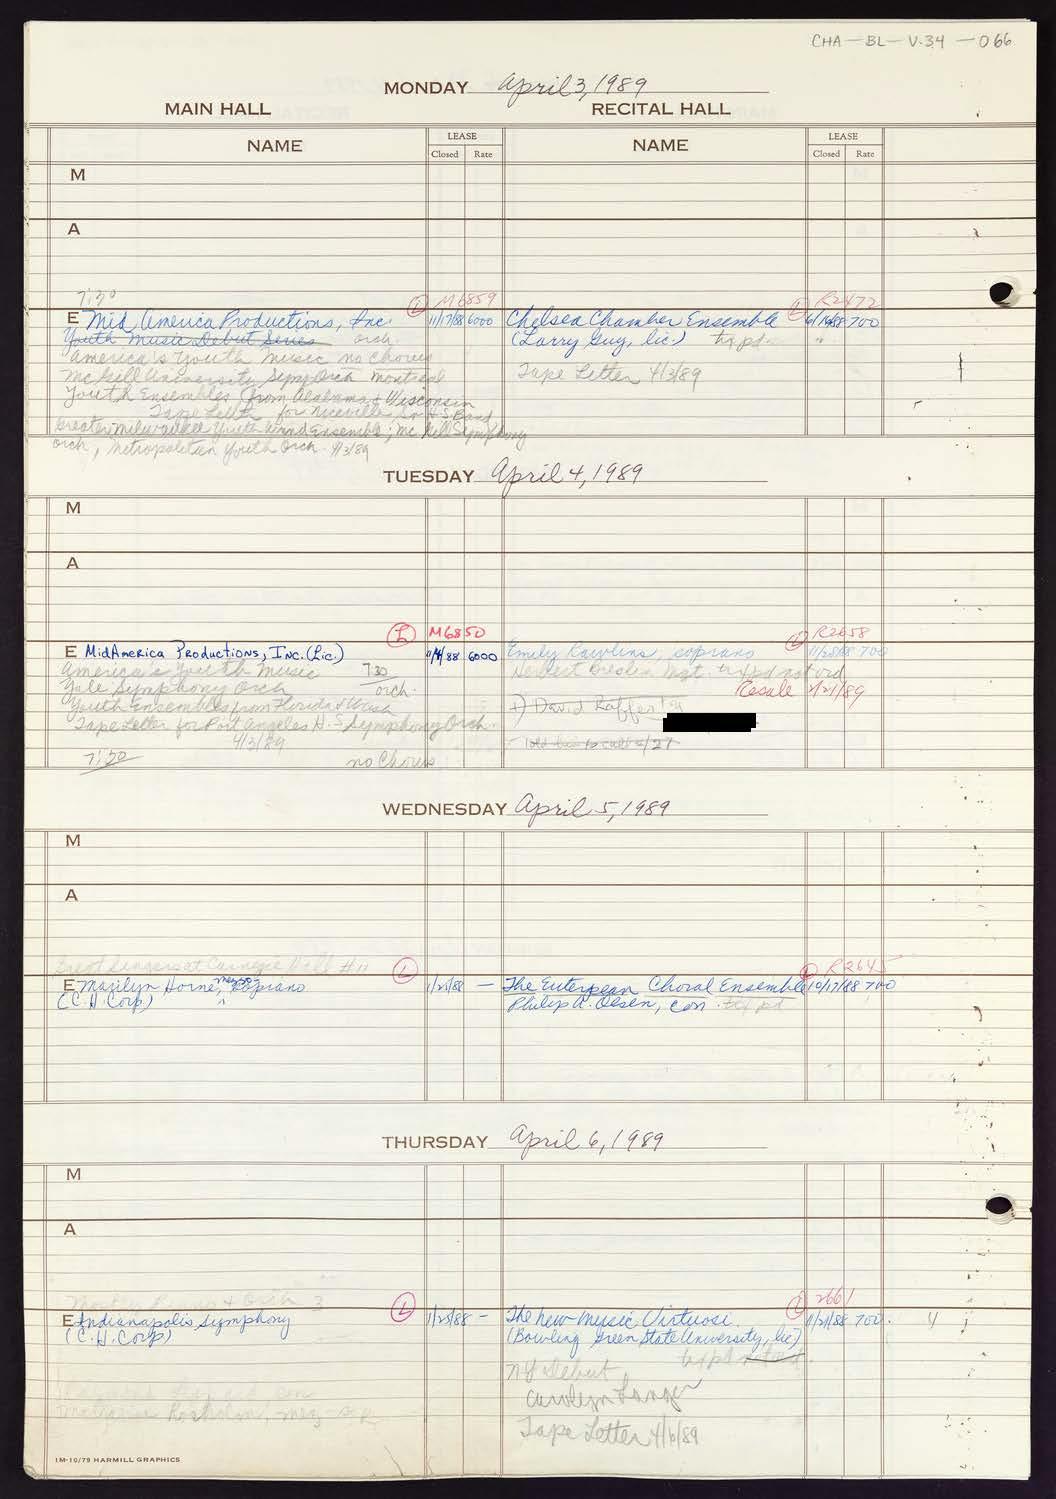 CHA-BL-V.34-066
MONDAY April 3, 1989
MAIN HALL RECITAL HALL
NAME LEASE NAME LEASE
Closed Rate Closed Rate
M
A
7:30 L M6859 L R2472
E Mid America Productions, Inc. 11/17/88 6000 Chelsea Chamber Ensemble 700
Youth Music Debut Series orch. (Larry Guy, lic.)
America's Youth Music no Chorus
McGill University Symp Orch Montreal Tape Letter 4/3/89
Youth Ensembles from Alabama & Wisconsin
Tape Letter for Niceville Sr. H.S. Band
Greater Milwaukee Youth Wind Ensemble; McGill Symphony
Orch, Metropolitan Youth Orch. 4/3/89
TUESDAY April 4, 1989
M
A
L M6850 L R2658
E MidAmerica Productions, Inc. (Lic.) 11/4/88 6000 Emily Rawlins, soprano 700
America's Youth Music 7:30 Mgt.
Yale Symphony Orch orch. Resale 2/21/89
Youth Ensembles from Florida & Wash
Tape Letter for Port Angeles H.S. Symphony Orch 1) David Rafferty
4/3/89
7:30 no Chorus
WEDNESDAY April 5, 1989
M
A
Great Singers at Carnegie Hall #11 L L R2645
E Marilyn Horne, mezzo soprano 1/21/88 — The Euterpean Choral Ensemble 10/17/88 700
(C.H. Corp) Philip A. Olsen, con.
THURSDAY April 6, 1989
M
A
L L 2661
E Indianapolis Symphony 1/25/88 - The New Music Virtuosi 11/21/88 700. 4
(C.H. Corp) (Bowling Green State University, lic)
NY Debut
Carolyn
Tape Letter 4/6/89
1M-10/79 HARMILL GRAPHICS